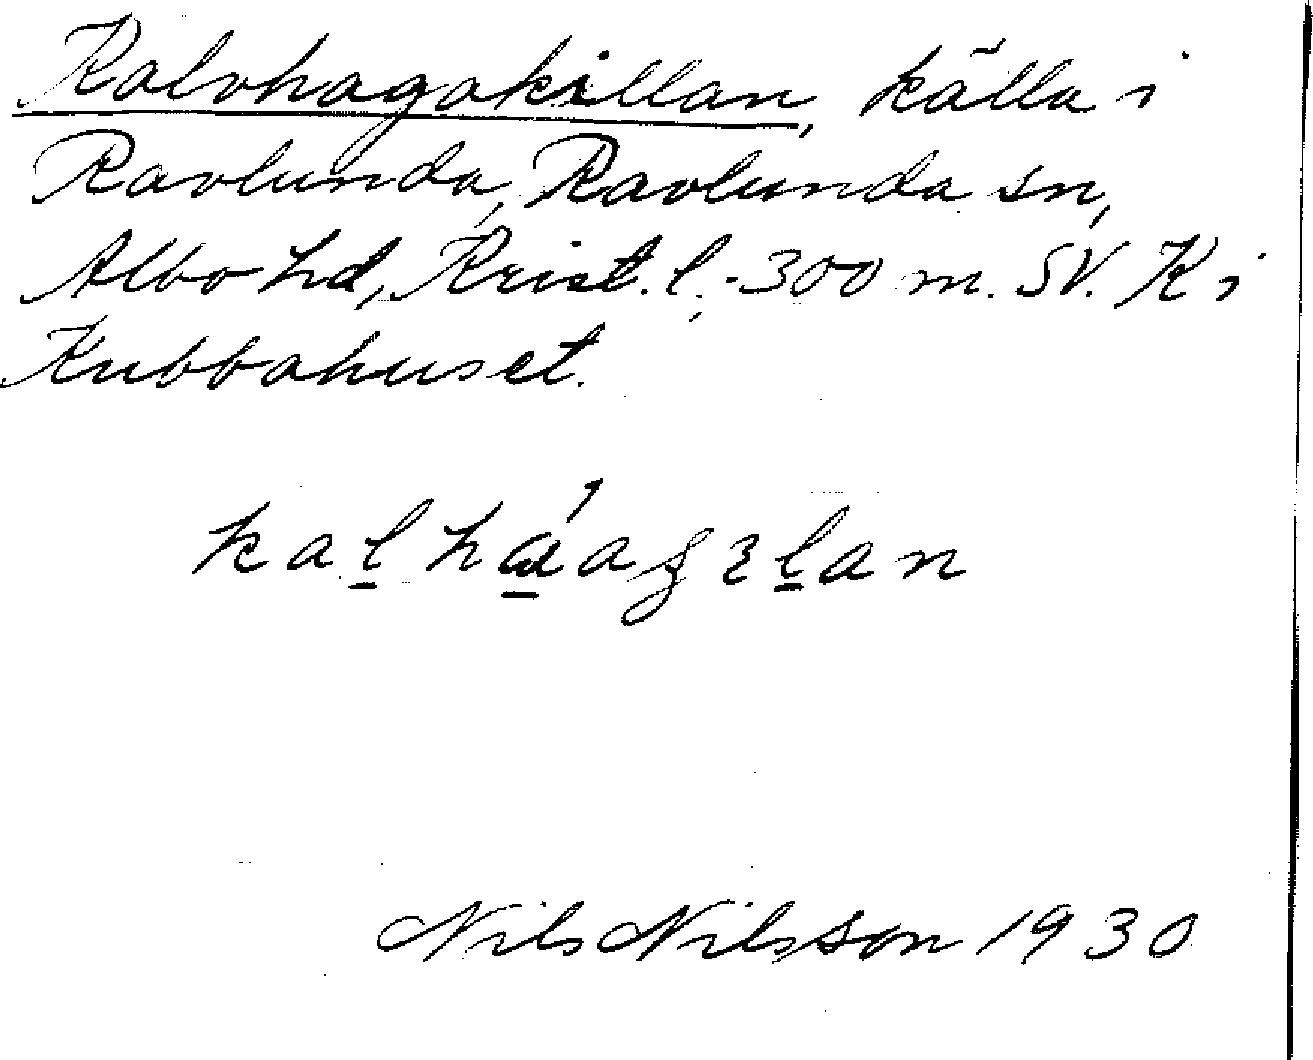 Kalvhagakillan, källa i
Ravlunda, Ravlunda sn,
Albo hd, Krist. l. - 300 m. SV. K i
Kubbahuset.
Nils Nilsson 1930